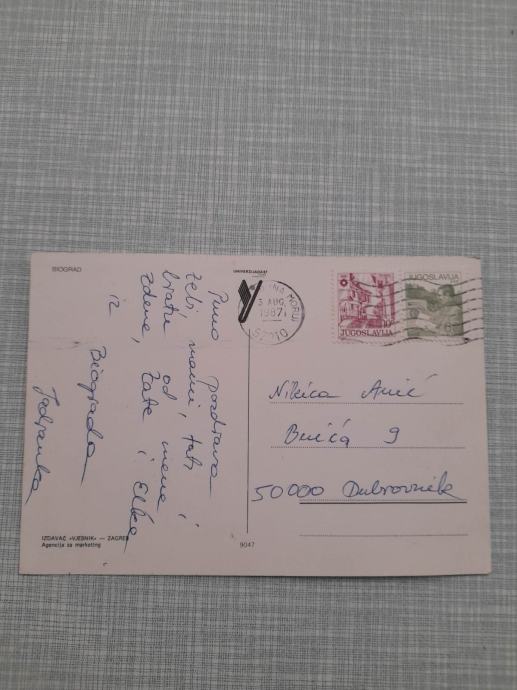 BIOGRAD
Puno pozdrava
tebi, mami, tati i
bratu od mene
Zdene, Tate i Elke
iz Biograda
Jadranka
UNIVERZIJADA '87
NA MORU
3 AUG. 1987
57210
10
JUGOSLAVIJA
JUGOSLAVIJA
Nikica Anić
Bunića 9
50000 Dubrovnik
IZDAVAČ «VJESNIK» — ZAGREB
Agencija za marketing
9047